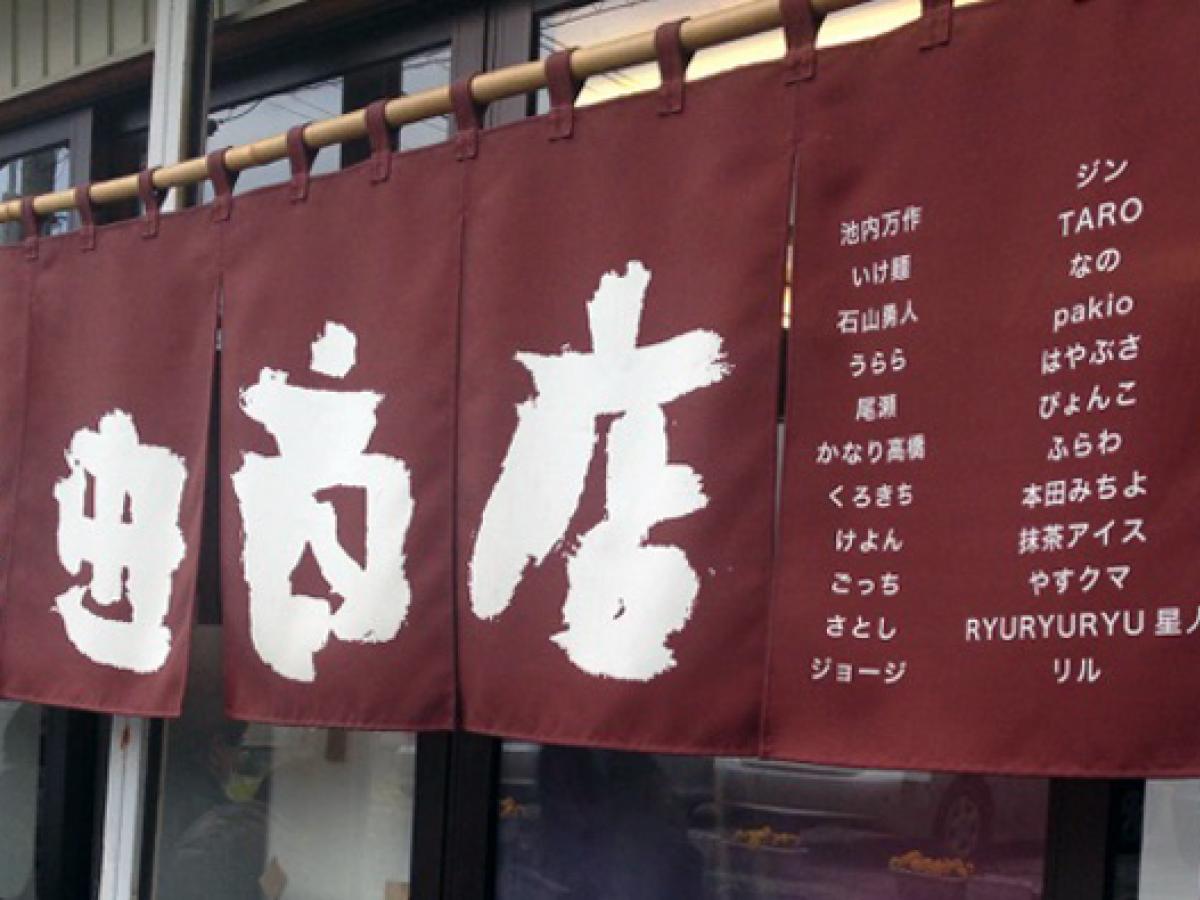 商店
池内万作
いけ麺
石山勇人
うらら
尾瀬
かなり高橋
くろきち
けよん
ごっち
さとし
ジョージ
ジン
TARO
なの
pakio
はやぶさ
ぴょんこ
ふらわ
本田みちよ
抹茶アイス
やすクマ
RYURYURYU 星ノ
リル